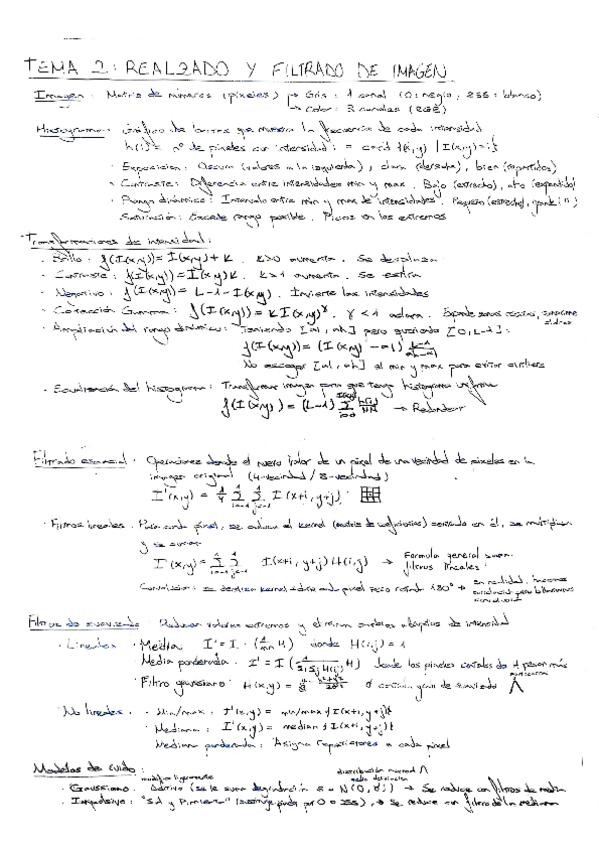 TEMA 2: REALZADO Y FILTRADO DE IMAGEN
Imagen: Matriz de números (píxeles) → Gris: 1 canal (0: negro, 255: blanco)
→ Color: 3 canales (RGB)
Histograma: Gráfico de barras que muestra la frecuencia de cada intensidad
h(i) = nº de píxeles con intensidad i = card {(x,y) | I(x,y)=i}
· Exposición: Oscura (valores a la izquierda), clara (derecha), bien (repartidos)
· Contraste: Diferencia entre intensidades min y max. Bajo (estrecho), alto (expandido)
· Rango dinámico: Intervalo entre min y max de intensidades. Pequeño (estrecho), grande (")
· Saturación: Excede rango posible. Picos en los extremos
Transformaciones de intensidad:
· Brillo: f(I(x,y)) = I(x,y)+k. k>0 aumenta. Se desplaza
· Contraste: f(I(x,y)) = I(x,y)k. k>1 aumenta. Se estira
· Negativo: f(I(x,y)) = L-1-I(x,y). Invierte las intensidades
· Corrección Gamma: f(I(x,y)) = kI(x,y)^γ. γ<1 aclara. Expande zonas oscuras,
· Ampliación del rango dinámico: Teniendo [al, ah] pero queriendo [0, L-1]:
f(I(x,y)) = (I(x,y) - al) L-1/ah-al
No escoger [al, ah] al min y max para evitar outliers
· Ecualización del histograma: Transformar imagen para que tenga histograma uniforme
f(I(x,y)) = (L-1) Σ h(i)/MN → Redondear
Filtrado espacial: Operaciones donde el nuevo valor de un píxel de una vecindad de píxeles en la
imagen original (4-vecindad / 8-vecindad)
I'(x,y) = 1/9 Σ Σ I(x+i, y+j)
· Filtros lineales: Para cada píxel, se coloca el kernel (matriz de coeficientes) centrado en él, se multiplican
y se suman
I'(x,y) = Σ Σ I(x+i, y+j) H(i,j) → Formula general para
filtros lineales
Convolución: se desliza kernel sobre cada píxel pero rotado 180° → en realidad, hacemos
Filtros de suavizado: Reducen valores extremos y eliminan cambios abruptos de intensidad
· Lineales: · Media I' = I · (1/mn H) donde H(i,j) = 1
Media ponderada: I' = I (1/ΣiΣj H(i,j) H) donde los píxeles centrales de H pesan más
· Filtro gaussiano: H(x,y) = e^-(x²+y²)/2σ² σ controla grado de suavizado
· No lineales: · Min/max: I'(x,y) = min/max {I(x+i, y+j)}
· Mediana: I'(x,y) = median {I(x+i, y+j)}
Mediana ponderada: Asigna repeticiones a cada píxel
Modelos de ruido:
modifica ligeramente distribución normal
· Gaussiano: Aditivo (se le suma degradación a ~ N(0,σ)) → Se reduce con filtros de media
· Impulsivo: "Sal y Pimienta" (sustituye píxeles por 0 o 255) → Se reduce con filtro de la mediana